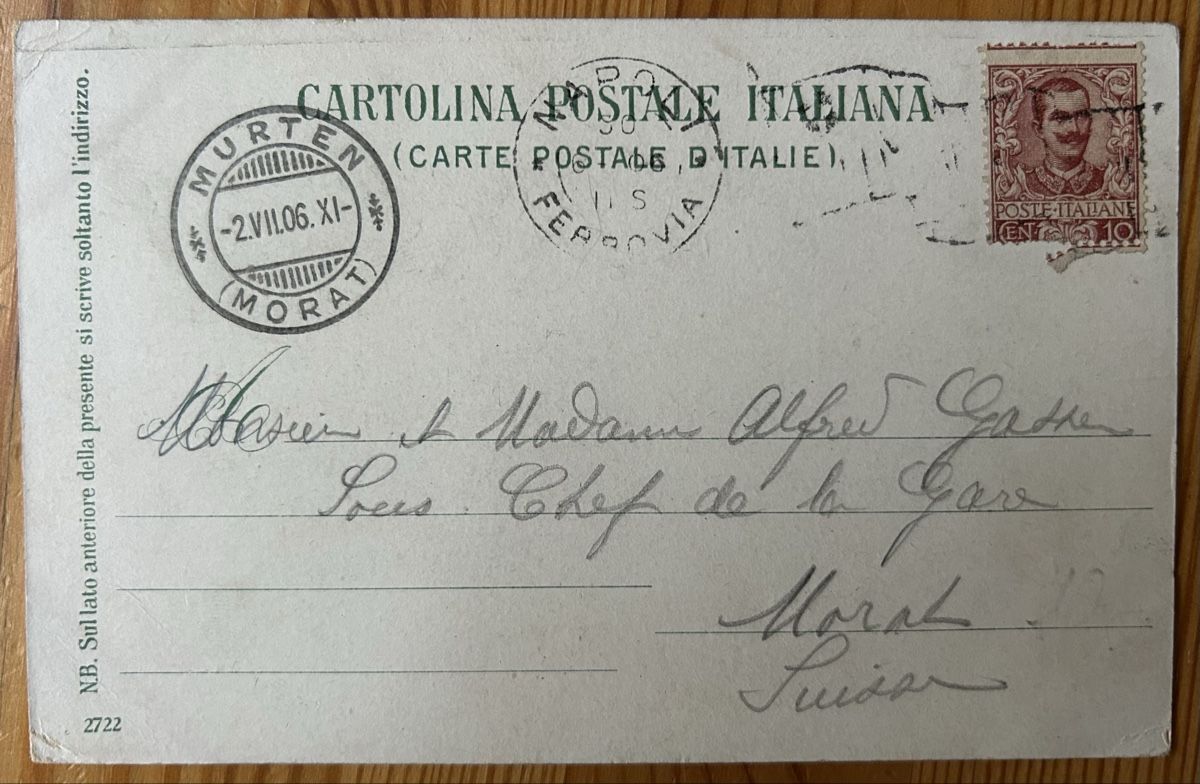 CARTOLINA POSTALE ITALIANA
(CARTE POSTALE D'ITALIE)
NAPOLI
30
6 06
11 S
FERROVIA
MURTEN
-2.VII.06.XI-
(MORAT)
POSTE·ITALIANE
CENT. 10
N.B. Sul lato anteriore della presente si scrive soltanto l'indirizzo.
Monsieur et Madame Alfred Gasser
Sous Chef de la Gare
Morat
Suisse
2722